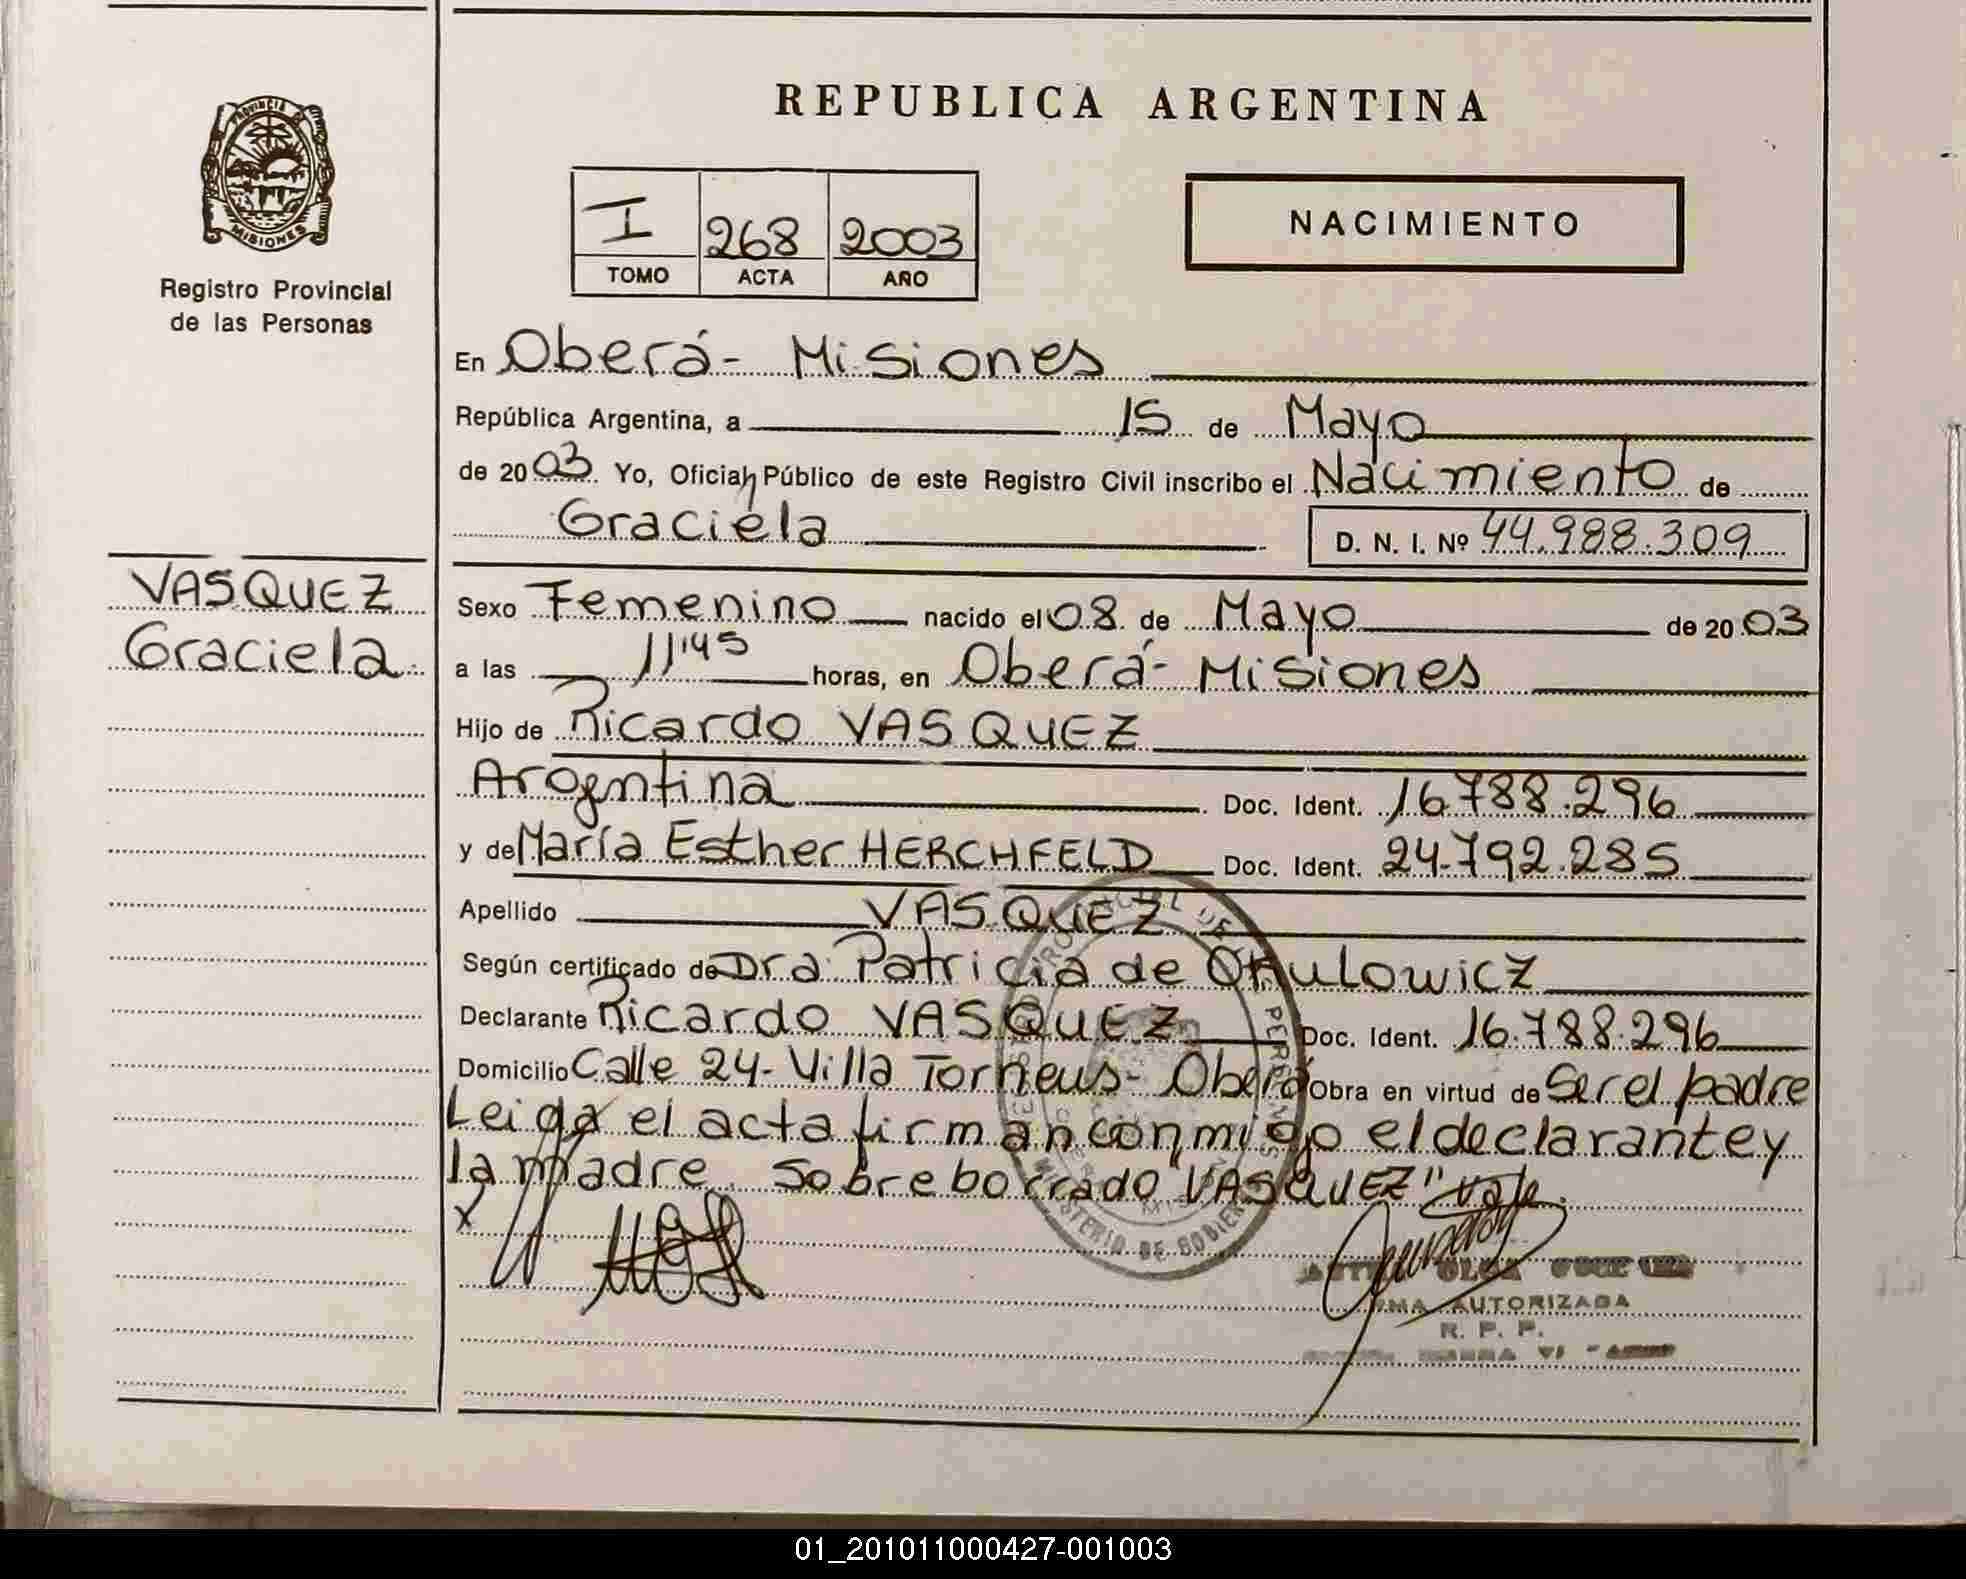 REPUBLICA ARGENTINA
PROVINCIA DE
MISIONES
Registro Provincial
de las Personas
I 268 2003
TOMO ACTA AÑO
NACIMIENTO
En Oberá- Misiones
República Argentina, a 15 de Mayo
de 2003. Yo, Oficial Público de este Registro Civil inscribo el Nacimiento de
Graciela D. N. I. Nº 44.988.309
VASQUEZ
Graciela
Sexo Femenino nacido el 08 de Mayo de 2003
a las 11'45 horas, en Oberá- Misiones
Hijo de Ricardo VASQUEZ
Argentina Doc. Ident. 16.788.296
y de María Esther HERCHFELD Doc. Ident. 24.792.285
Apellido VASQUEZ
Según certificado de Dra. Patricia de Okulowicz
Declarante Ricardo VASQUEZ Doc. Ident. 16.788.296
Domicilio Calle 24- Villa Torneus- Oberá Obra en virtud de Ser el padre
Leida el acta firman conmigo el declarante y
la madre. Sobreborrado "VASQUEZ" vale.
X
MINISTERIO DE GOBIERNO
AUTORIZADA
R. P. P.
01_201011000427-001003